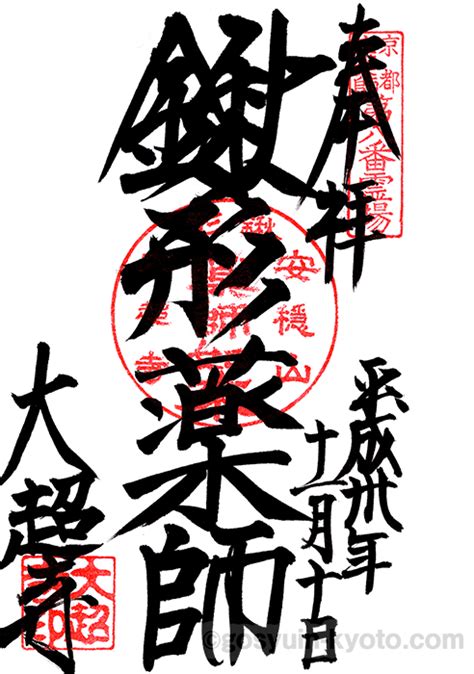 奉拝
京都
第八番霊場
鍬形薬師
安穏山
平成卅年
十一月十日
大超寺
©gosyuin-kyoto.com